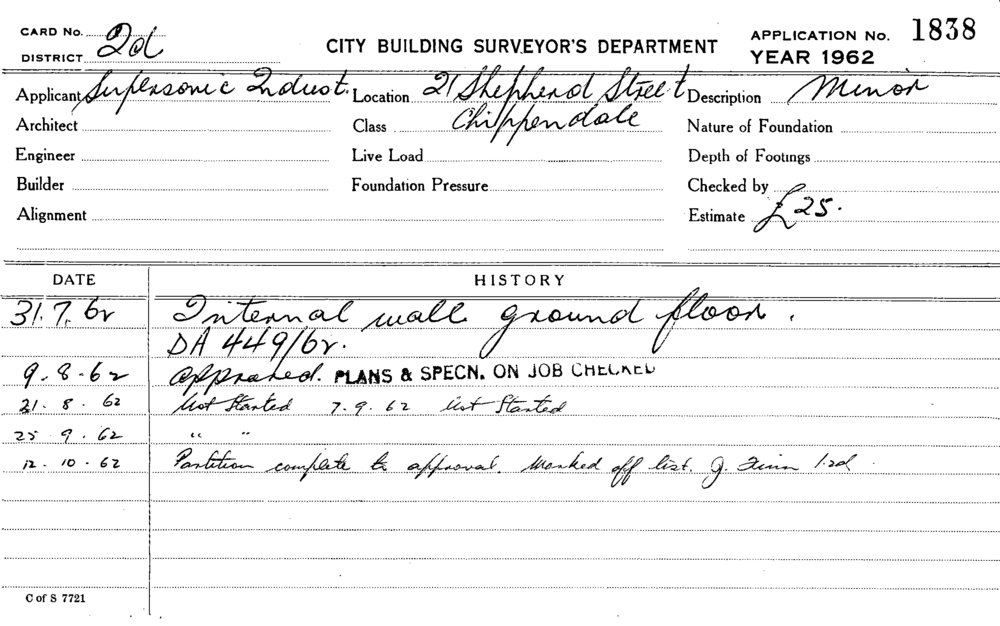 CARD No. 2d
DISTRICT
CITY BUILDING SURVEYOR'S DEPARTMENT
APPLICATION No. 1838
YEAR 1962
Applicant Supersonic Indust. Location 21 Shepherd Street Description Minor
Architect Class Chippendale Nature of Foundation
Engineer Live Load Depth of Footings
Builder Foundation Pressure Checked by
Alignment Estimate £25.
DATE HISTORY
31.7.62 Internal wall ground floor.
DA 449/62.
9.8.62 approved. PLANS & SPECN. ON JOB CHECKED
21.8.62 Not Started 7.9.62 Not Started
25.9.62 " "
12.10.62 Partition complete to approval. Marked off list. J.
C of S 7721